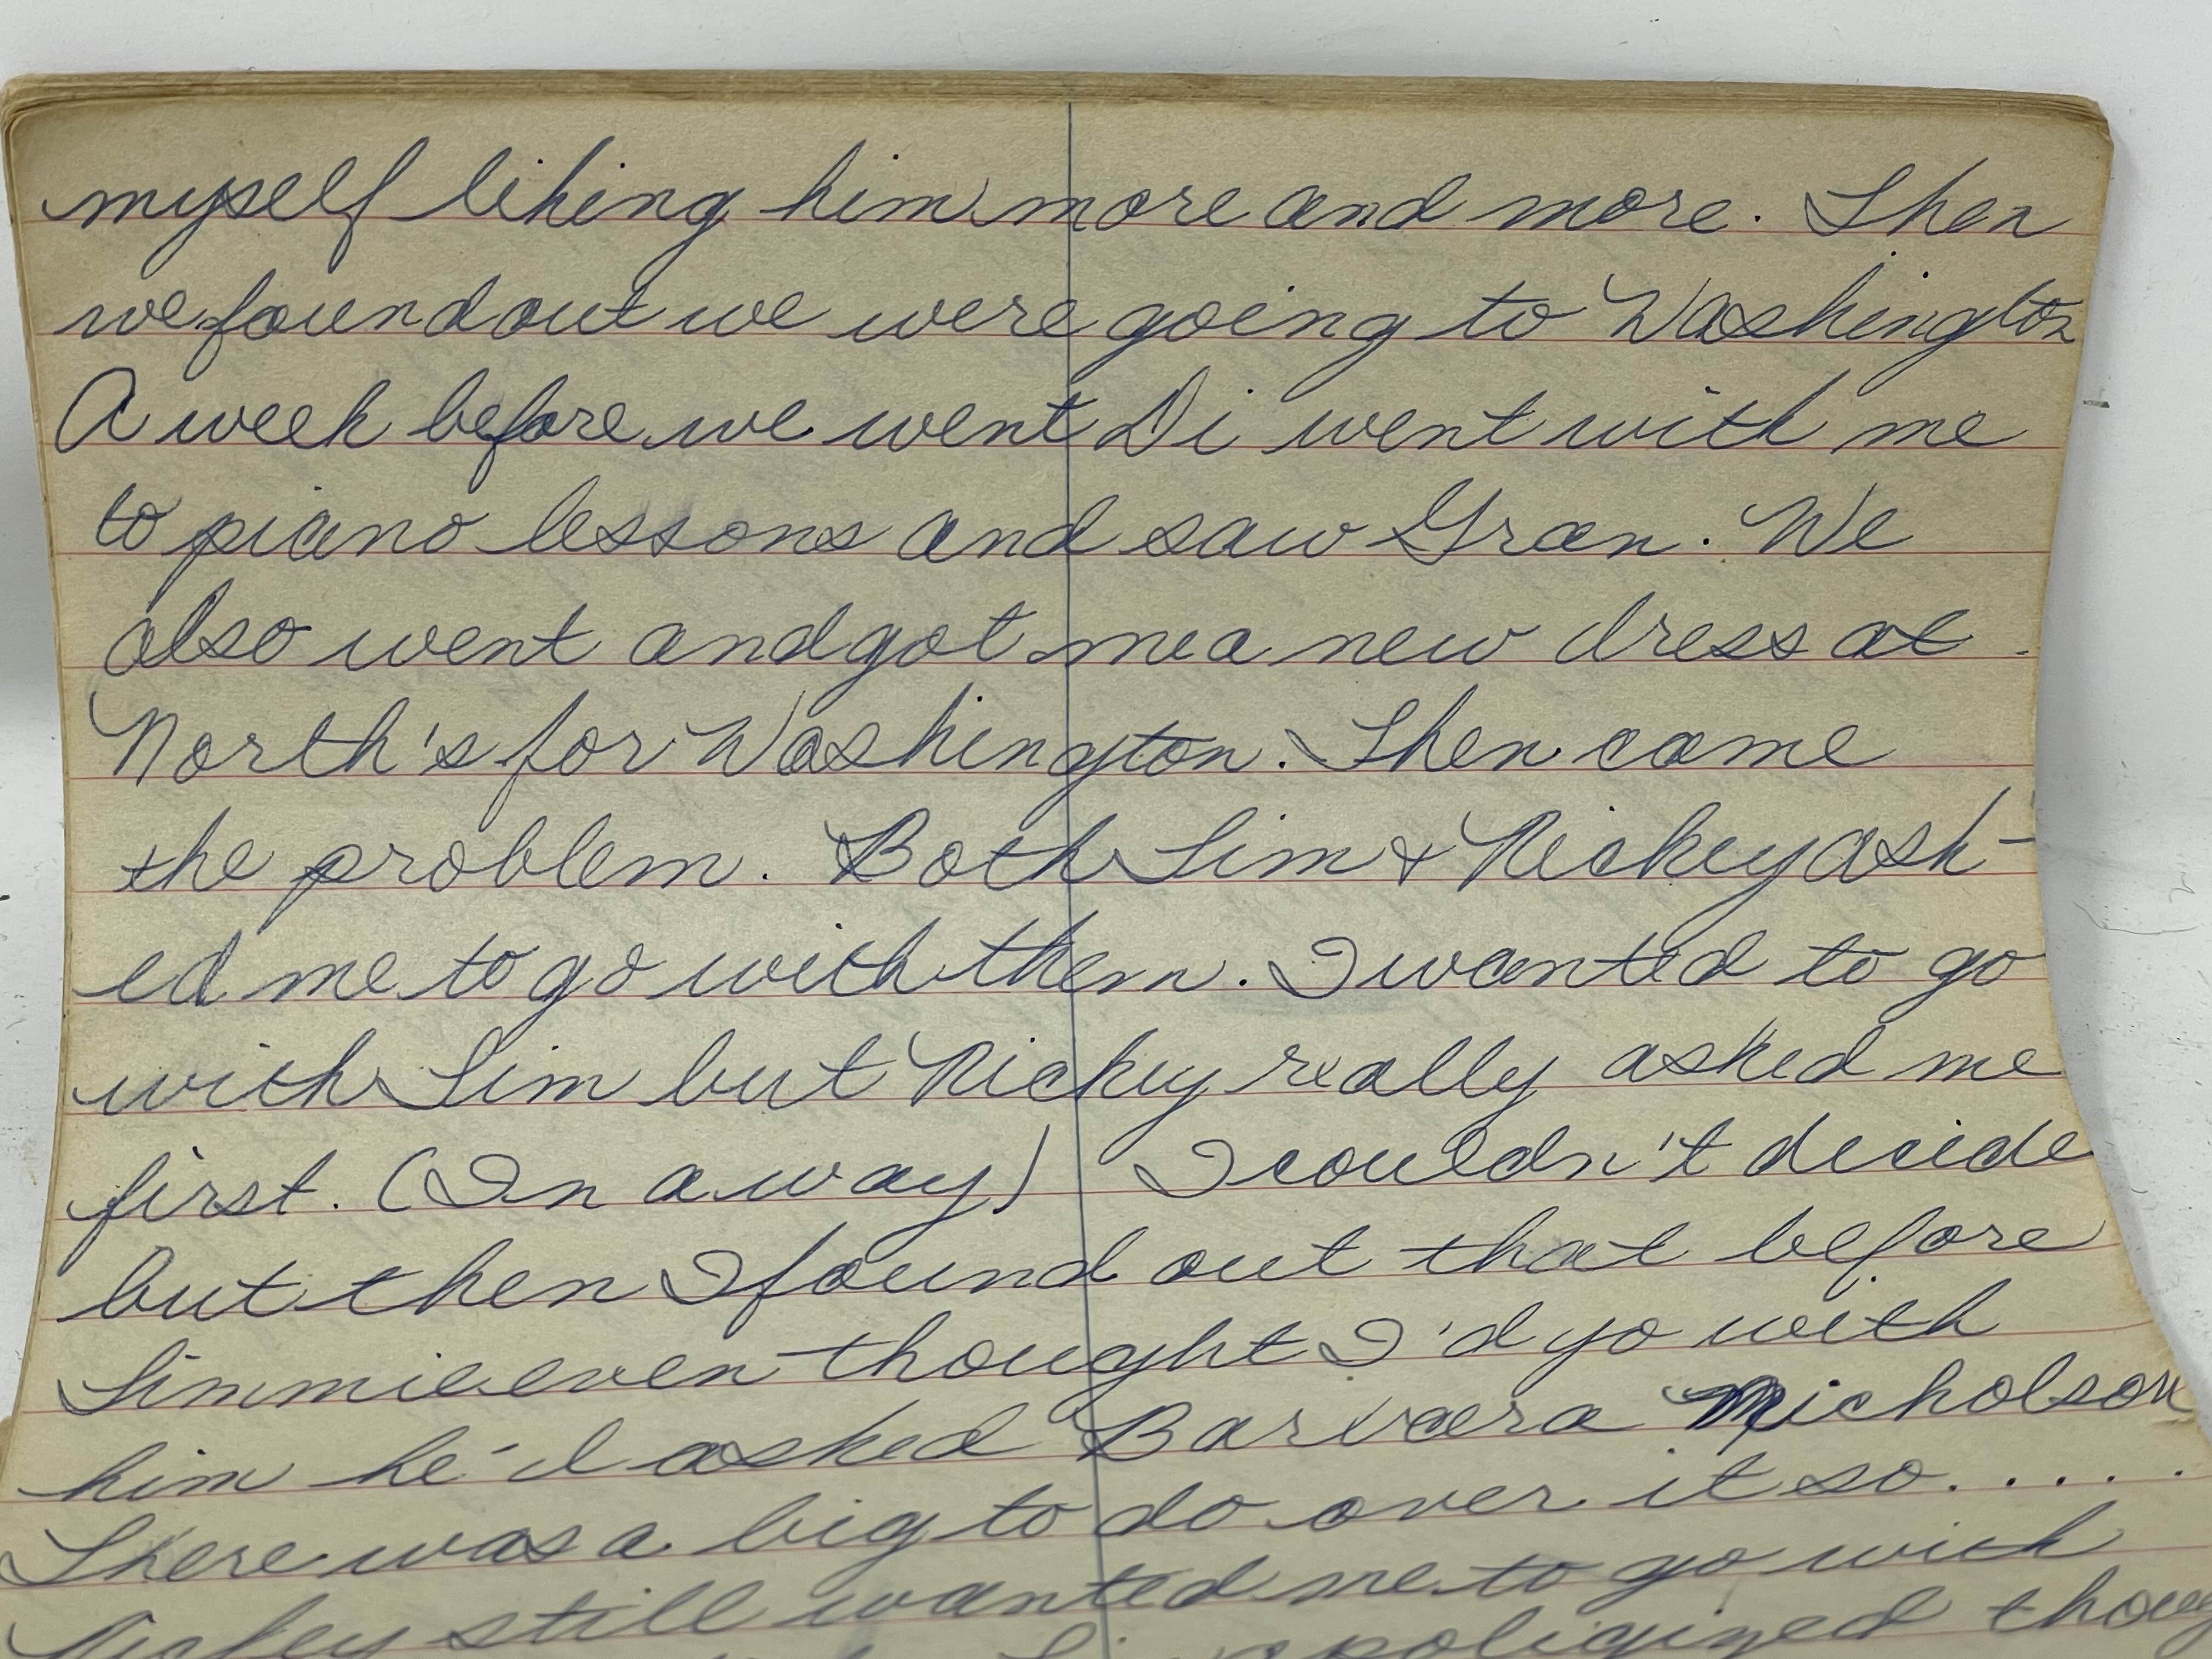 myself liking him more and more. Then
we found out we were going to Washington
A week before we went Di went with me
to piano lessons and saw Gran. We
also went and got me a new dress at
North's for Washington. Then came
the problem. Both Jim & Rickey ask-
ed me to go with them. I wanted to go
with Jim but Rickey really asked me
first. (In a way) I couldn't decide
but then I found out that before
Jimmie even thought I'd go with
him he'd asked Barbara Nicholson
There was a big to do over it so.....
Rickey still wanted me to go with
apoligized though